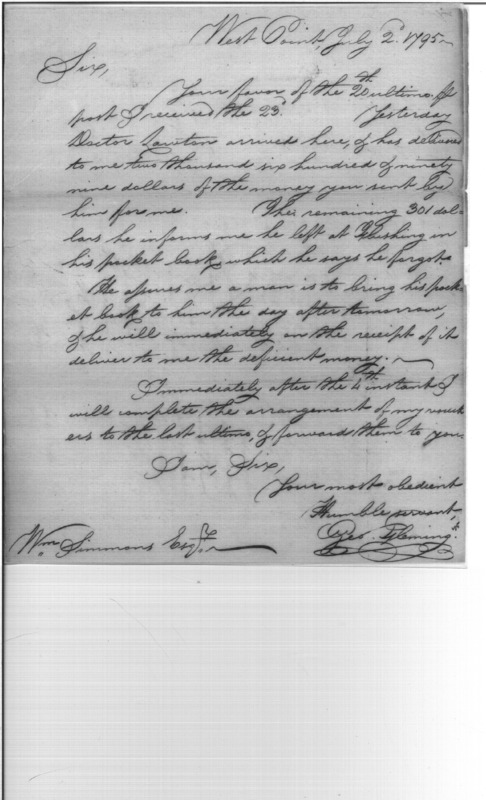 West Point, July 2d. 1795
Sir,
Your favor of the 20th ultimo, Pr
post I received the 23. Yesterday
Doctor Lawton arrived here, & has delivered
to me two thousand six hundred & ninety
nine dollars of the money you sent by
him for me. The remaining 301 dol-
lars he informs me he left at Flushing in
his pocket book, which he says he forgot.
He assures me a man is to bring his pock-
et book to him the day after tomorrow,
& he will immediately on the receipt of it
deliver to me the deficient money.
Immediately after the 4th instant I
will complete the arrangement of my vouch-
ers to the last ultimo, & forward them to you.
I am, Sir,
Your most obedient
Humble servant,
Geo. Fleming.
Wm. Simmons Esqr.